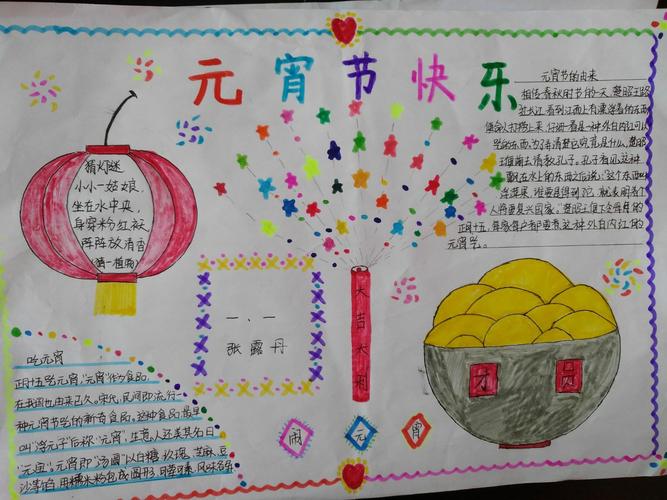 元宵节快乐
元宵节的由来
相传春秋时节的一天，楚昭王路
过大江，看到江面上有漂浮着的东西
使命人打捞上来，仔细一看是一种外白内红可以
吃的东西，为了弄清楚它究竟是什么，楚昭
王唯前去请教孔子，孔子看见这种
飘在水上的东西之后说："这个东西叫
浮萍果，谁要是得到它，就表明着个
人将要复兴国家。"楚昭王便下令每年的
正月十五，每家每户都要煮这种外白内红的
元宵吃。
猜灯谜
小小一姑娘，
坐在水中央，
身穿粉红袄，
阵阵放清香
(猜一植物)
大吉大利
一、一
张露丹
吃元宵
正月十五吃元宵，"元宵"作为食品，
在我国也由来已久。宋代，民间即流行一
种元宵节吃的新奇食品。这种食品，最早
叫"浮元子"后称"元宵"，生意人还美其名曰
"元宝"。元宵即"汤圆"以白糖、玫瑰、芝麻、豆
沙等馅，用糯米粉包成圆形，可荤可素，风味各异
闹元宵